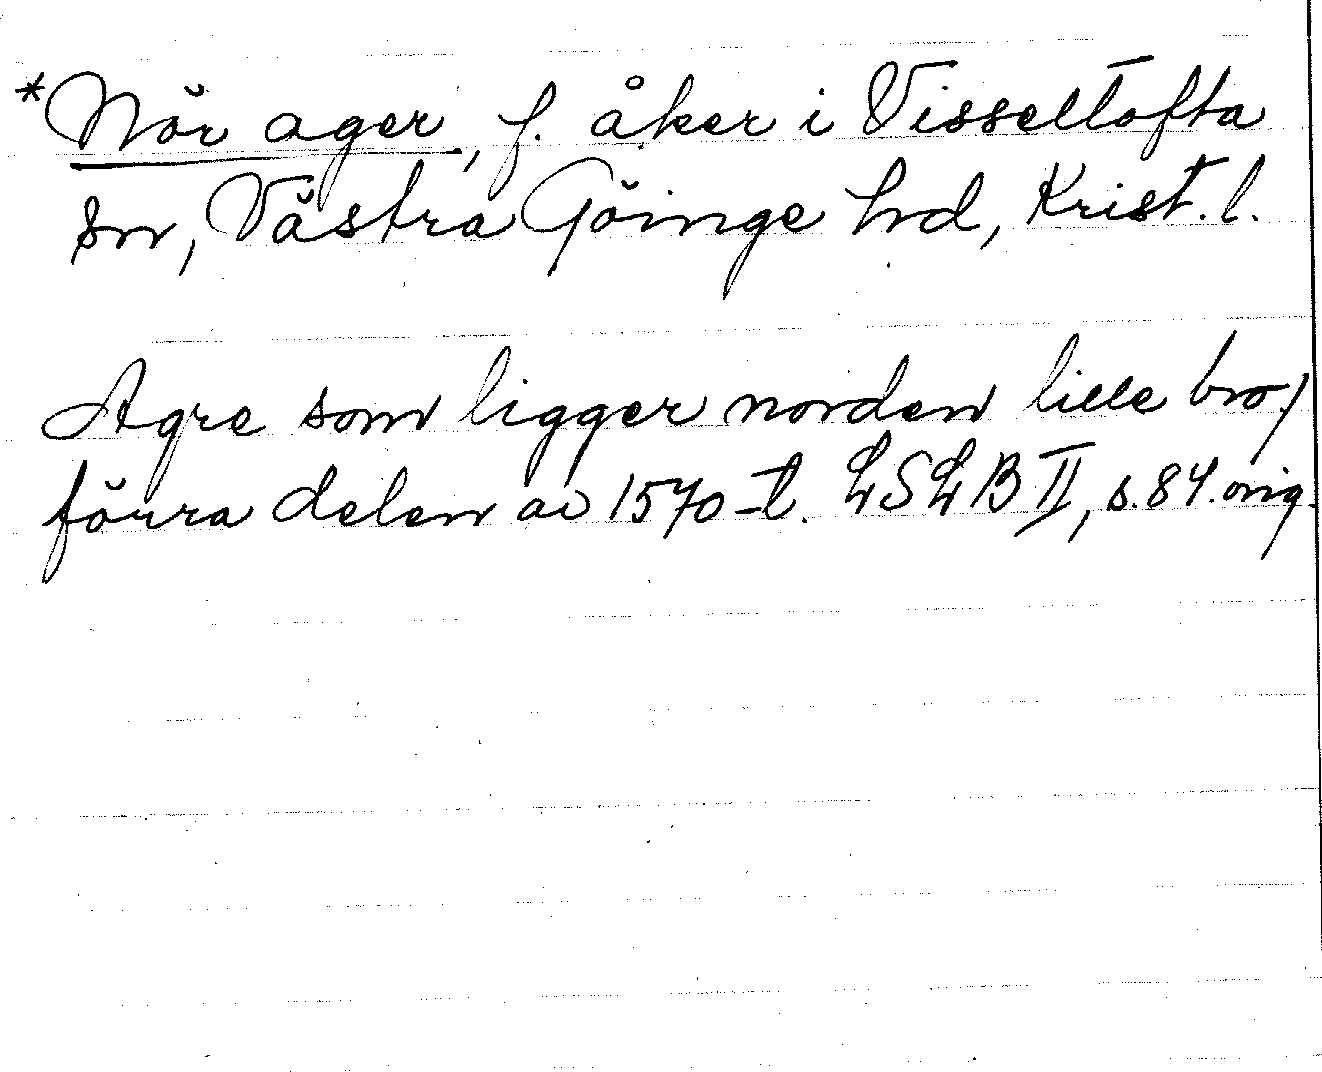 *Nör ager, f. åker i Visseltofta
sn, Västra Göinge hd, Krist. l.
Agre som ligger norden lille bro/
förra delen av 1570-t. LSLB II, s. 84. orig.